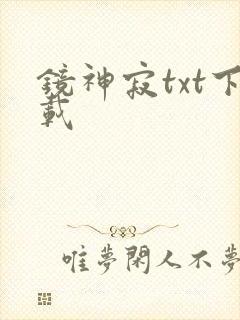 鏡神寂txt下
載
唯夢閑人不夢